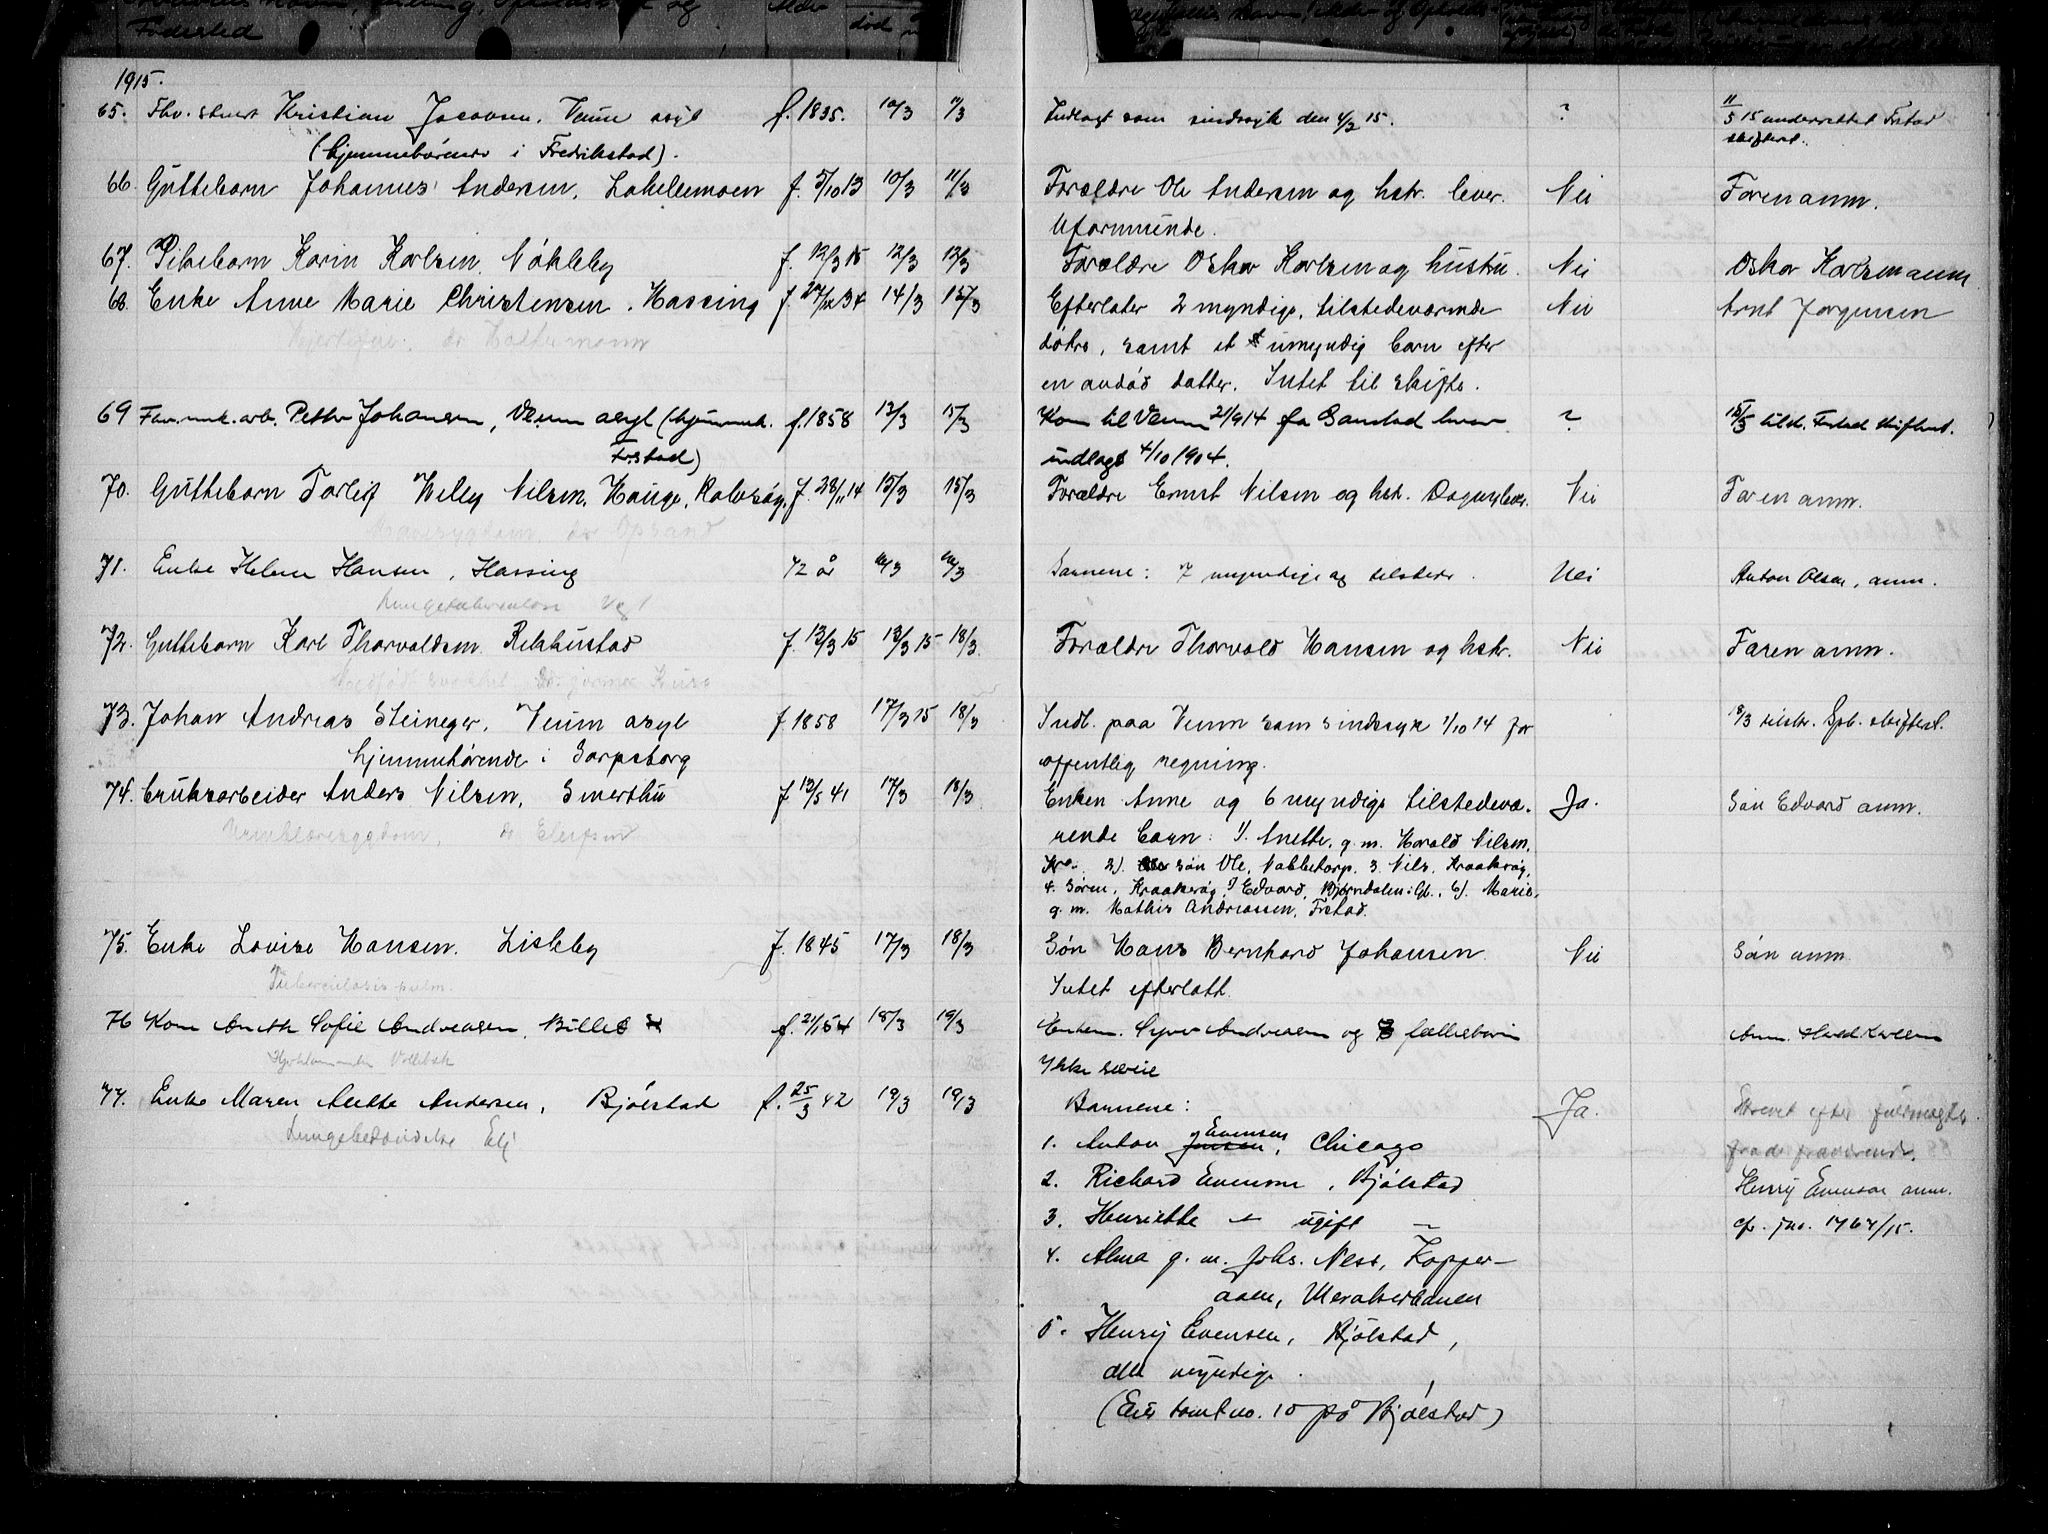 1915.
65. Fhv. stuert Kristian Jacobsen, Veum asyl f. 1835. 10/3 11/3 Indlagt som sindssyk den 4/2 15. ? 11/3 15 underrettet Fstad
(hjemmehørende i Fredrikstad). skifteret.
66. Guttebarn Johannes Andersen, Lahellemoen f. 5/10 13 10/3 11/3 Forældre Ole Andersen og hstr. lever. Nei Faren anm.
Uformuende.
67. Pikebarn Karin Karlsen, Nökleby f. 12/3 15 12/3 13/3 Forældre Oskar Karlsen og hustru. Nei Oskar Karlsen anm
68. Enke Anne Marie Christensen, Hassing f. 27/12 34 14/3 15/3 Efterlater 2 myndige, tilstedeværende Nei Arnt Jørgensen
Hjertefeil. dr
døtre, samt et umyndig barn efter
en avdöd datter. Intet til skifte.
69 Fhv. murarb. Petter Johansen, Veum asyl (hjemmeh. f. 1858 13/3 15/3 Kom til Veum 21/9 14 fra Gaustad hvor ? 15/3 tilskr. Fstad skifteret.
Frstad) indlagt 4/10 1904.
70. Guttebarn Torleif Willy Nilsen, Hauge, Rolvsøy, f. 28/11 14 15/3 15/3 Forældre Ernst Nilsen og hstr. Dagny lever. Nei Faren anm.
71. Enke Helene Hansen, Hassing 72 år 16/3 16/3 Barnene: 7 myndige og tilstede. Nei Anton Olsen, anm.
Lungetuberculose
72. Guttebarn Karl Thorvaldsen Rekkustad f. 13/3 15 13/3 15 18/3 Forældre Thorvald Hansen og hstr. Nei Faren anm.
Medfødt svakhet
73. Johan Andreas Steineger, Veum asyl f. 1858 17/3 15 18/3 Indl. paa Veum som sindssyk 1/10 14 for 18/3 tilskr. Spb. skifteret.
hjemmehørende i Sarpsborg offentlig regning.
74. Bruksarbeider Anders Nilsen, Smertu f 13/5 41 17/3 18/3 Enken Anne og 6 myndige tilstedevæ- Ja. Søn Edvard anm.
dr Ellefsen
rende barn: 1). Anette, g. m. Harald Nilsen,
Kra. 2). søn Ole, Nabbetorp. 3. Nils, Kraakerøy,
4. Søren, Kraakerøy, 5) Edvard, Bjørndalen: Gl., 6). Marie,
g. m. Mathis Andreassen, Frstad.
75. Enke Lovise Hansen. Lisleby f. 1845 17/3 18/3 Søn Hans Bernhard Johansen Nei Søn anm.
Tuberculosis pulm. Intet efterlatt.
76 Kone Anette Sofie Andreasen, Bille f. 21/1 54 18/3 19/3 Enkem. Syver Andreasen og fællesbørn Anm. Harald Karlsen
Ikke særeie
77. Enke Maren Anette Andersen, Bjölstad f. 25/3 42 19/3 19/3 Barnene: Ja. Skrevet efter fuldmagter
Lungebetændelse 1. Anton Jensen Evensen, Chicago fra de fraværende.
2. Richard Evensen, Bjölstad Henry Evensen anm.
3. Henriette — ugift — cfr. jno. 1767/15.
4. Alma g. m. Johs. Ness, Kopper-
aaen, Meraker
5. Henry Evensen, Bjölstad,
alle myndige.
(Eier tomt no. 10 på Bjölstad)